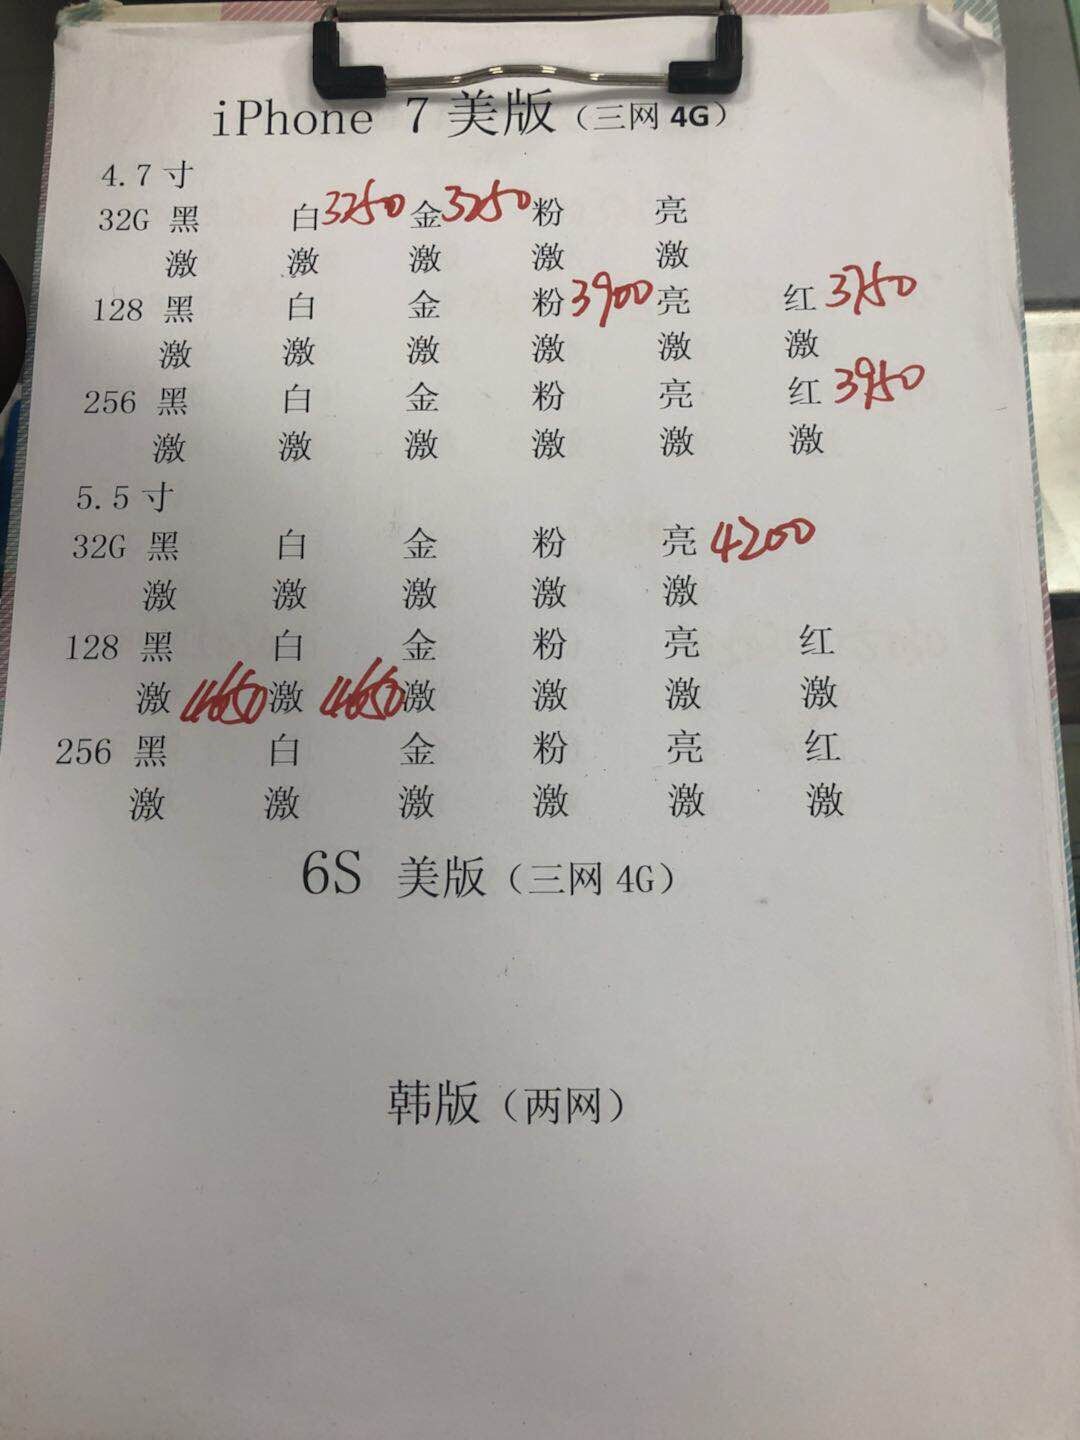 iPhone 7 美版（三网 4G）
4.7 寸
32G 黑 白 3250 金 3250 粉 亮
激 激 激 激 激
128 黑 白 金 粉 3900 亮 红 3750
激 激 激 激 激 激
256 黑 白 金 粉 亮 红 3950
激 激 激 激 激 激
5.5 寸
32G 黑 白 金 粉 亮 4200
激 激 激 激 激
128 黑 白 金 粉 亮 红
激 4650 激 4650 激 激 激 激
256 黑 白 金 粉 亮 红
激 激 激 激 激 激
6S 美版（三网 4G）
韩版（两网）